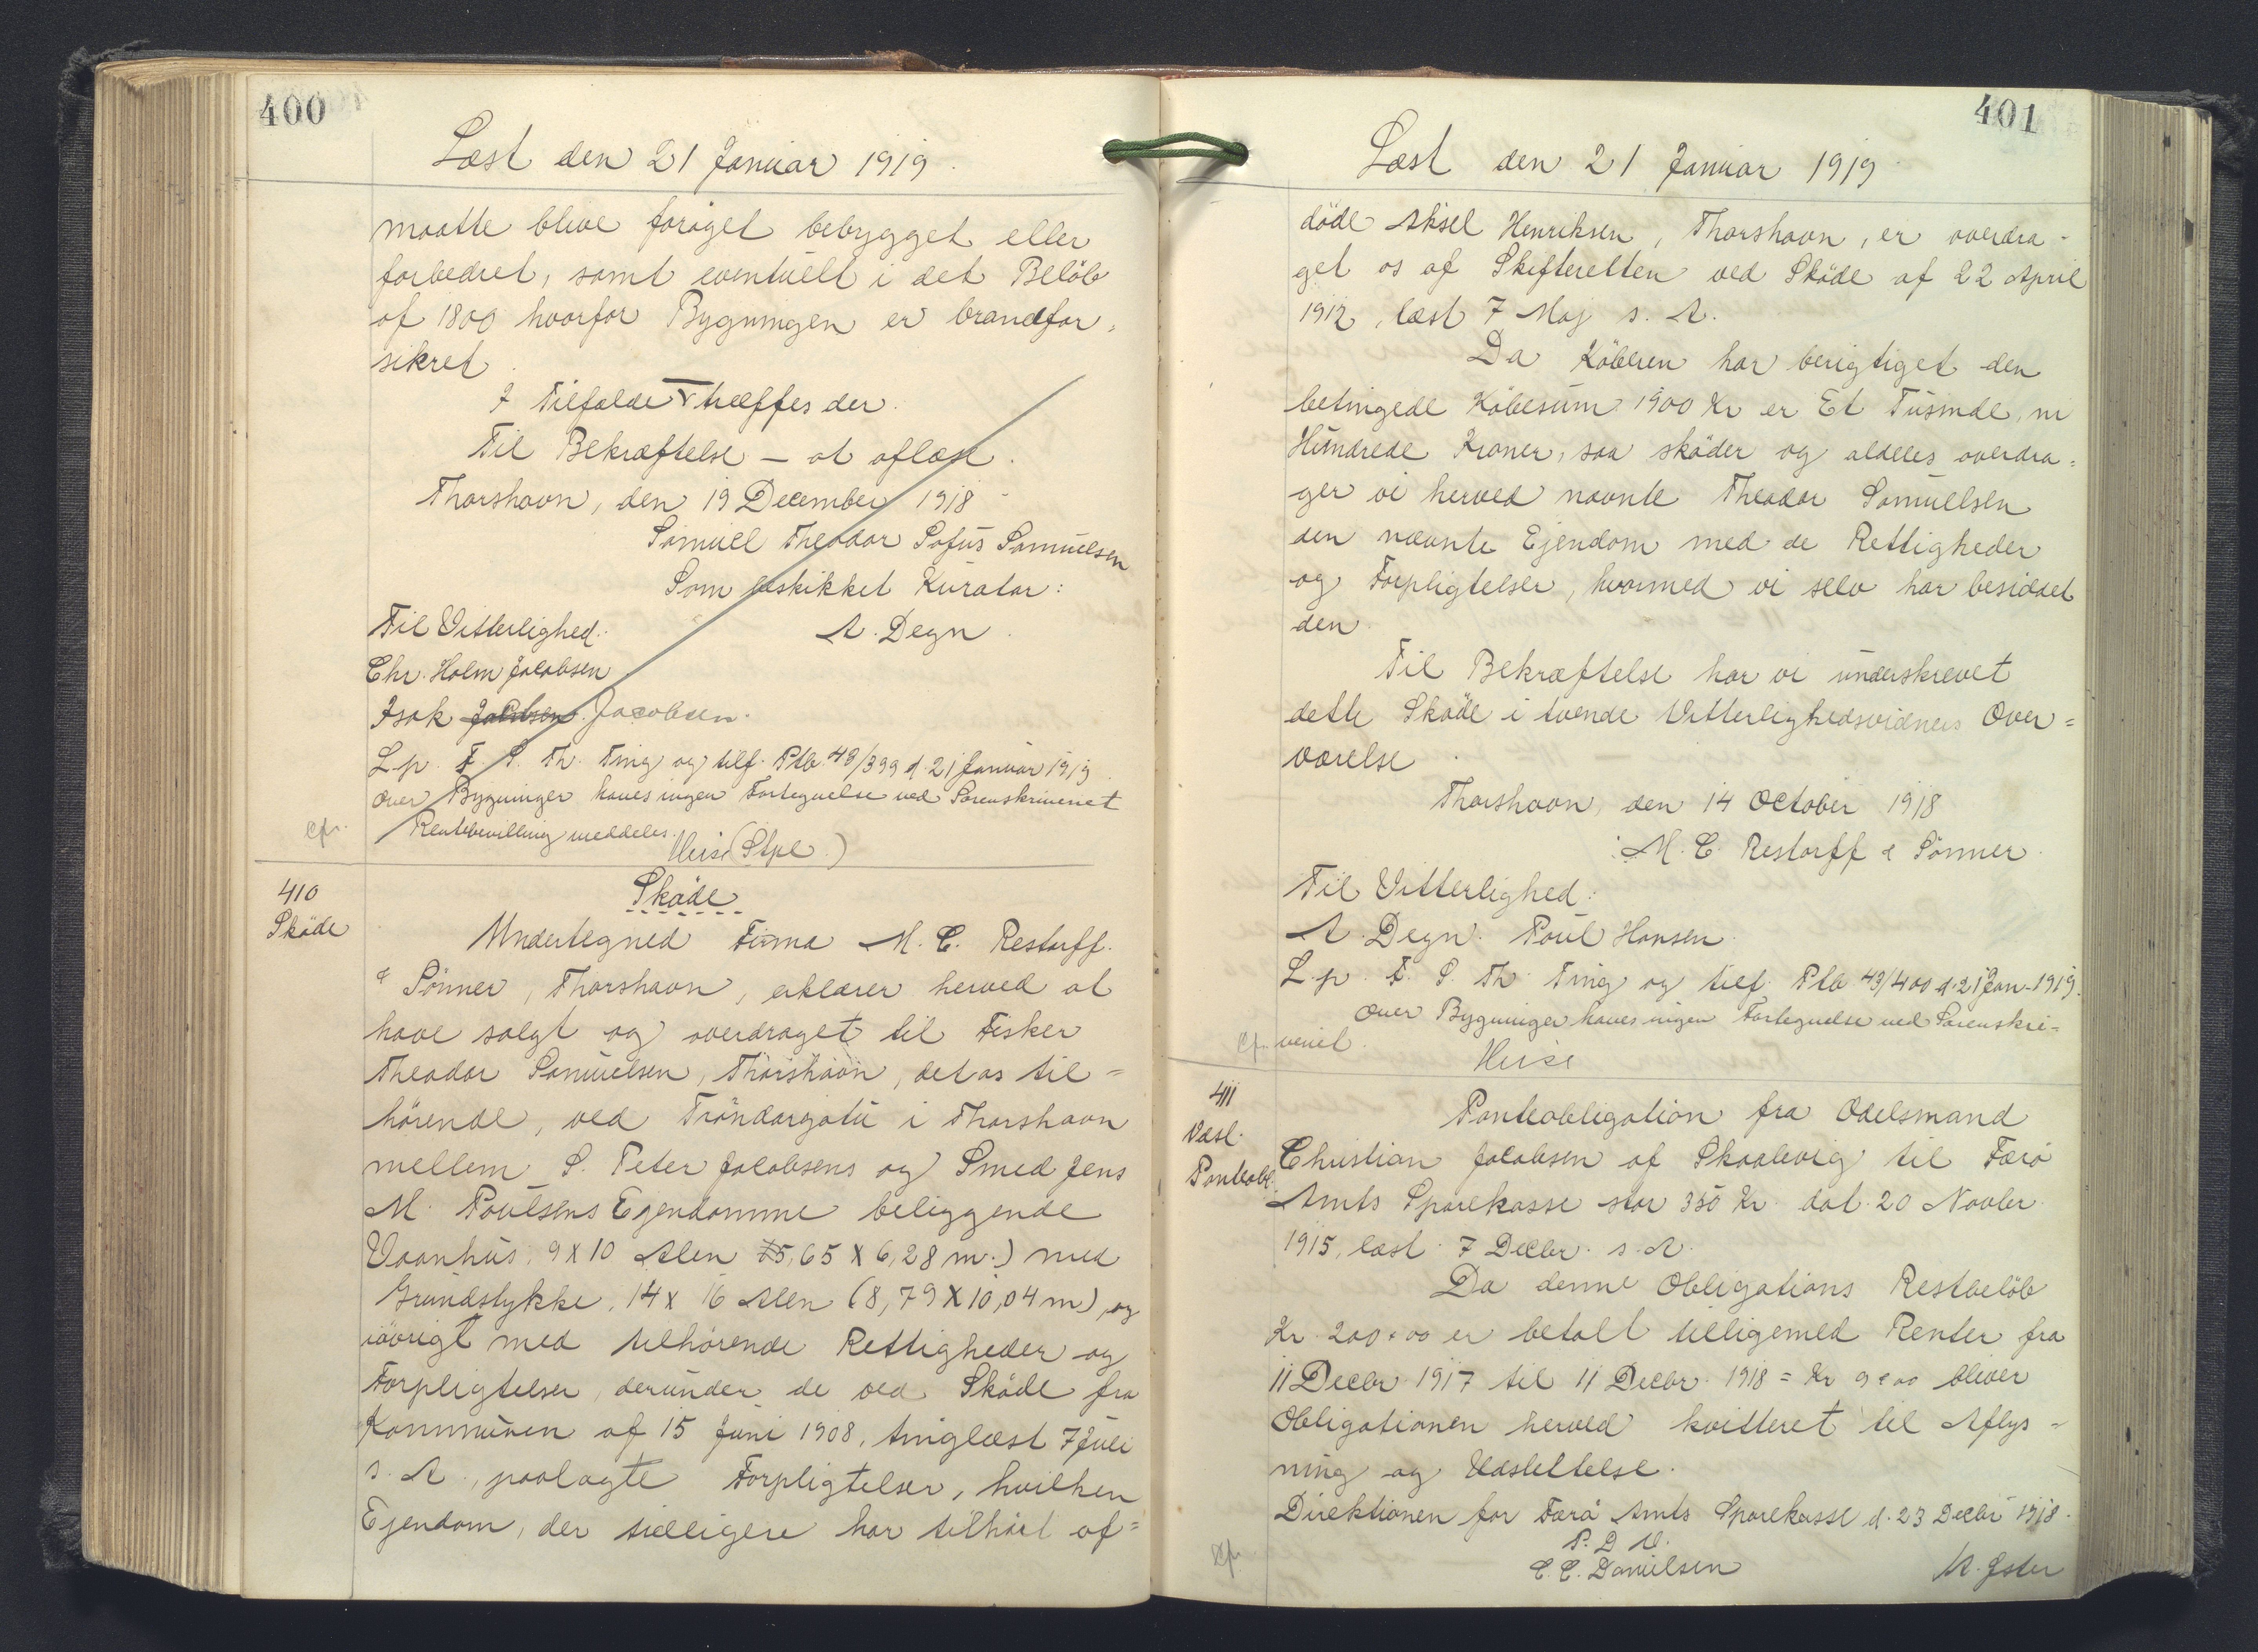 400
Læst den 21 Januar 1919.
maatte blive forøget bebygget eller
forbedret, samt eventuelt i det Beløb
af 1800 hvorfor Bygningen er brandfor-
sikret.
I Tilfælde træffes der.
Til Bekræftelse – at aflæse.
Thorshavn, den 19 December 1918
Samuel Theodor Sofus Samuelsen
Som beskikket Kurator:
Til Vitterlighed: A. Degn.
Chr. Holm Jacobsen
Isak Jacobsen. Jacobsen.
L. p. F. S. Th. Ting og tilf. Ptb. 43/399 d. 21 Januar 1919.
Over Bygninger haves ingen Fortegnelse ved Sorenskriveriet
Rentebevilling meddeles.
cfr. Heise (Stpl.)
410
Skøde
Sköde
Undertegned Firma M. C. Restorff
& Sönner, Thorshavn, erklærer herved at
have solgt og overdraget til Fisker
Theodor Samuelsen, Thorshavn, det os til-
hörende, ved Tróndargøtu i Thorshavn
mellem S. Peter Jacobsens og Smed Jens
M. Poulsens Ejendomme beliggende
Vaanhus, 9 x 10 Alen (5,65 x 6,28 m.) med
Grundstykke, 14 x 16 Alen (8,79 x 10,04 m), og
iövrigt med tilhörende Rettigheder og
Forpligtelser, derunder de ved Sköde fra
Kommunen af 15 Juni 1908, tinglæst 7 Juli
s. A., paalagte Forpligtelser, hvilken
Ejendom, der tidligere har tilhört af-
401
Læst den 21 Januar 1919.
döde Aksel Henriksen, Thorshavn, er overdra-
get os af Skifteretten ved Sköde af 22 April
1912, læst 7 Maj s. A.
Da Köberen har berigtiget den
betingede Köbesum 1900 Kr er Et Tusinde, ni
Hundrede Kroner, saa sköder og aldeles overdra-
ger vi herved nævnte Theodor Samuelsen
den nævnte Ejendom med de Rettigheder
og Forpligtelser, hvormed vi selv har besiddet
den.
Til Bekræftelse har vi underskrevet
dette Sköde i tvende Vitterlighedsvidners Over-
værelse.
Thorshavn, den 14 October 1918
M. C. Restorff & Sönner.
Til Vitterlighed:
A. Degn. Poul Hansen.
L. p. F. S. Th. Ting og tilf. Ptb. 43/400 d. 21 Jan. 1919.
Over Bygninger haves ingen Fortegnelse ved Sorenskri-
cfr. veriet.
Heise
411
Udsl.
Panteobl.
Panteobligation fra Odelsmand
Christian Jacobsen af Skaalevig til Færö
Amts Sparekasse stor 350 Kr. dat. 20 Novbr.
1915, læst 7 Decbr. s. A.
Da denne Obligations Restbelöb
Kr. 200,00 er betalt tilligemed Renter fra
11 Decbr. 1917 til 11 Decbr. 1918 = Kr 9,00 bliver
Obligationen herved kvitteret til Aflys-
ning og Udslettelse.
Direktionen for Færö Amts Sparekasse d. 23 Decbr. 1918.
P. D. V.
cfr. C. C. Danielsen